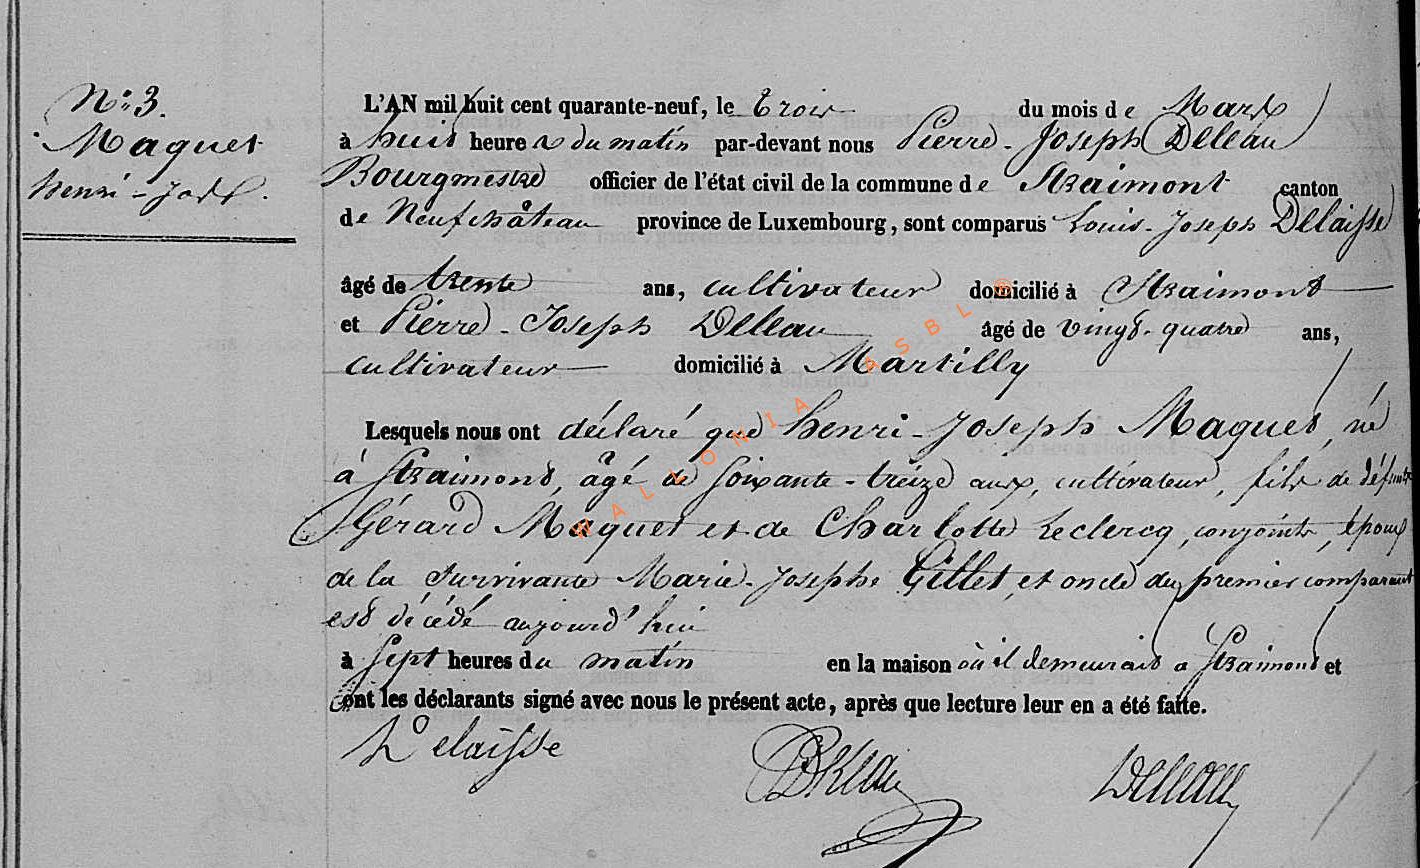 N° 3.
Maquet
henri-Josph.
L'AN mil huit cent quarante-neuf, le Trois du mois de Mars
à huit heures du matin par-devant nous Pierre-Joseph Deleau
Bourgmestre officier de l'état civil de la commune de Straimont canton
de Neufchâteau province de Luxembourg, sont comparus Louis-Joseph Delaisse
âgé de trente ans, cultivateur domicilié à Straimont
et Pierre-Joseph Deleau âgé de vingt-quatre ans,
cultivateur domicilié à Martilly
Lesquels nous ont déclaré que henri-Joseph Maquet, né
à Straimont, âgé de soixante-treize ans, cultivateur, fils de défunts
Gérard Maquet et de Charlotte Leclercq, conjoints, époux
de la survivante Marie-Josephe Gillet, et oncle du premier comparant
est décédé aujourd'hui
à sept heures du matin en la maison où il demeurait à Straimont et
ont les déclarants signé avec nous le présent acte, après que lecture leur en a été faite.
Delaisse Deleau Deleau
WALLONIA ASBL ©